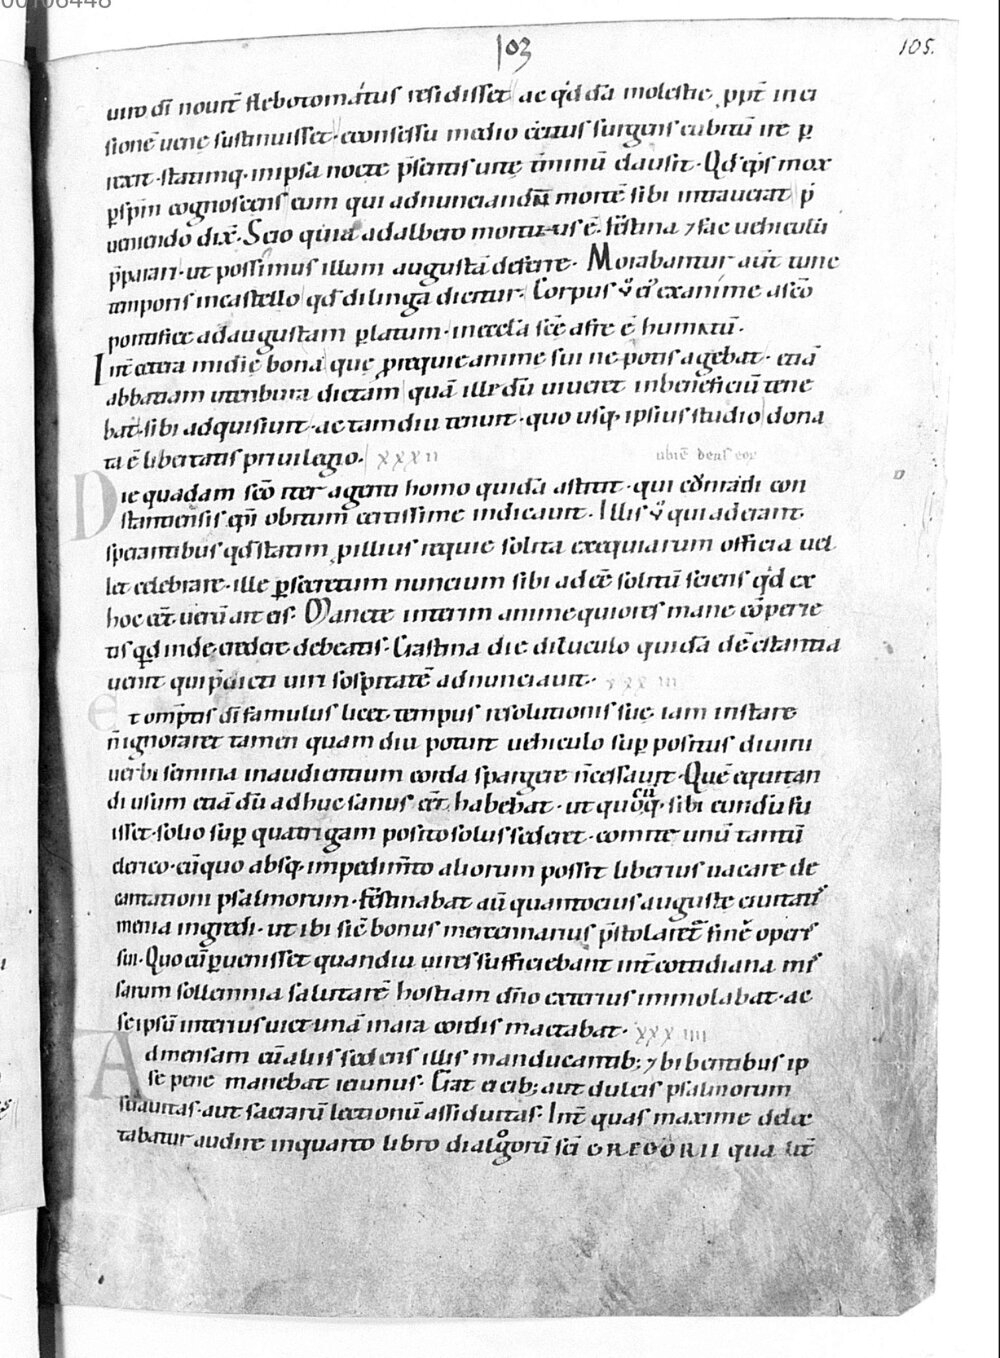 103
105.
uiro dī nouit̄ flebotomatus resedisset ac qd̓dā moleste ppt̄ inci
sionē uenę sustinuisset· consessu medio ocius surgens cubitū ire p̄
rexit· statimq· in ipsa nocte p̄sentis uitę t̄minū clausit· Qd̓ ep̄s mox
p̄ sp̄m cognoscens eum qui adnunciandū mortē sibi intrauerat p̄
ueniendo dix̄· Scio quia adalbero mortuus ē· festina ⁊ fac uehiculū
p̄parari· ut possimus illum augustā deferre· Morabantur aūt tunc
temporis incastello qd̓ dilinga dicitur· Corpus ṽ ei᷒ exanime a sc̄o
pontifice ad augustam p̄latum· in ecclā sc̄ę afre ē humatū·
Int̄ cetera inidię bona quę p requie anime sui nepotis agebat· etiā
abbatiam utenbura dictam quā ille dū uiueret in beneficiū tene
bat· sibi adquisiuit· ac tam diu tenuit· quo usq ipsius studio dona
ta ē libertatis priuilegio. xxxii
Die quadam sc̄o iter agenti homo quidā astitit· qui cōnradi con
stantiensis ep̄i obitum certissime indicauit· Illis ṽ qui aderant
sperantibus qd̓ statim p illius requie solita exequiarum officia uel
let celebrare· ille p secretum nuncium sibi ad eē solitū sciens qd̓ ex
hoc cēt uerū ait eis· Manete interim anime quiores mane cōperie
tis qd̓ inde credere debeatis· Crastina die diluculo quidā de cstantia
uenit qui p̄dicti uiri sospitatē adnunciauit· xxxiii
et omptis dī famulus licet tempus resolutionis suę iam instare
n̄ ignoraret tamen quam diu potuit uehiculo sup positus diuini
uerbi semina in audientium corda spargere n̄ cessauit· Quē equitan
di usum etiā dū adhuc sanus cēt habebat· ut quoq· sibi eundū fu
cū
isset· solio sup quatrigam posito solus sederet· comite unū tantū
clerico· cū quo absq· impedimto aliorum possit liberius uacare de
cantationi psalmorum· festinabat aū quantocius auguste ciuitatis
menia ingredi· ut ibi sic̄ bonus mercennarius p̄stolaret̄ finē operis
sui· Quo cū puenisset quandiu uires sufficiebant int̄ cottidiana mis
sarum sollemnia salutarē hostiam dn̄o exterius immolabat· ac
se ipsū interius uictimā in ara cordis mactabat· xxxiiii
Ad mensam cū aliis sedens illis manducantib; ⁊ bibentibus ip
se pene manebat ieiunus· Erat ei cib; aut dulcis psalmorum
suauitas· aut sacrarū lectionū assiduitas· Int̄ quas maxime delec
tabatur audire in quarto libro dialogorū sc̄i GREGORII qualit̄